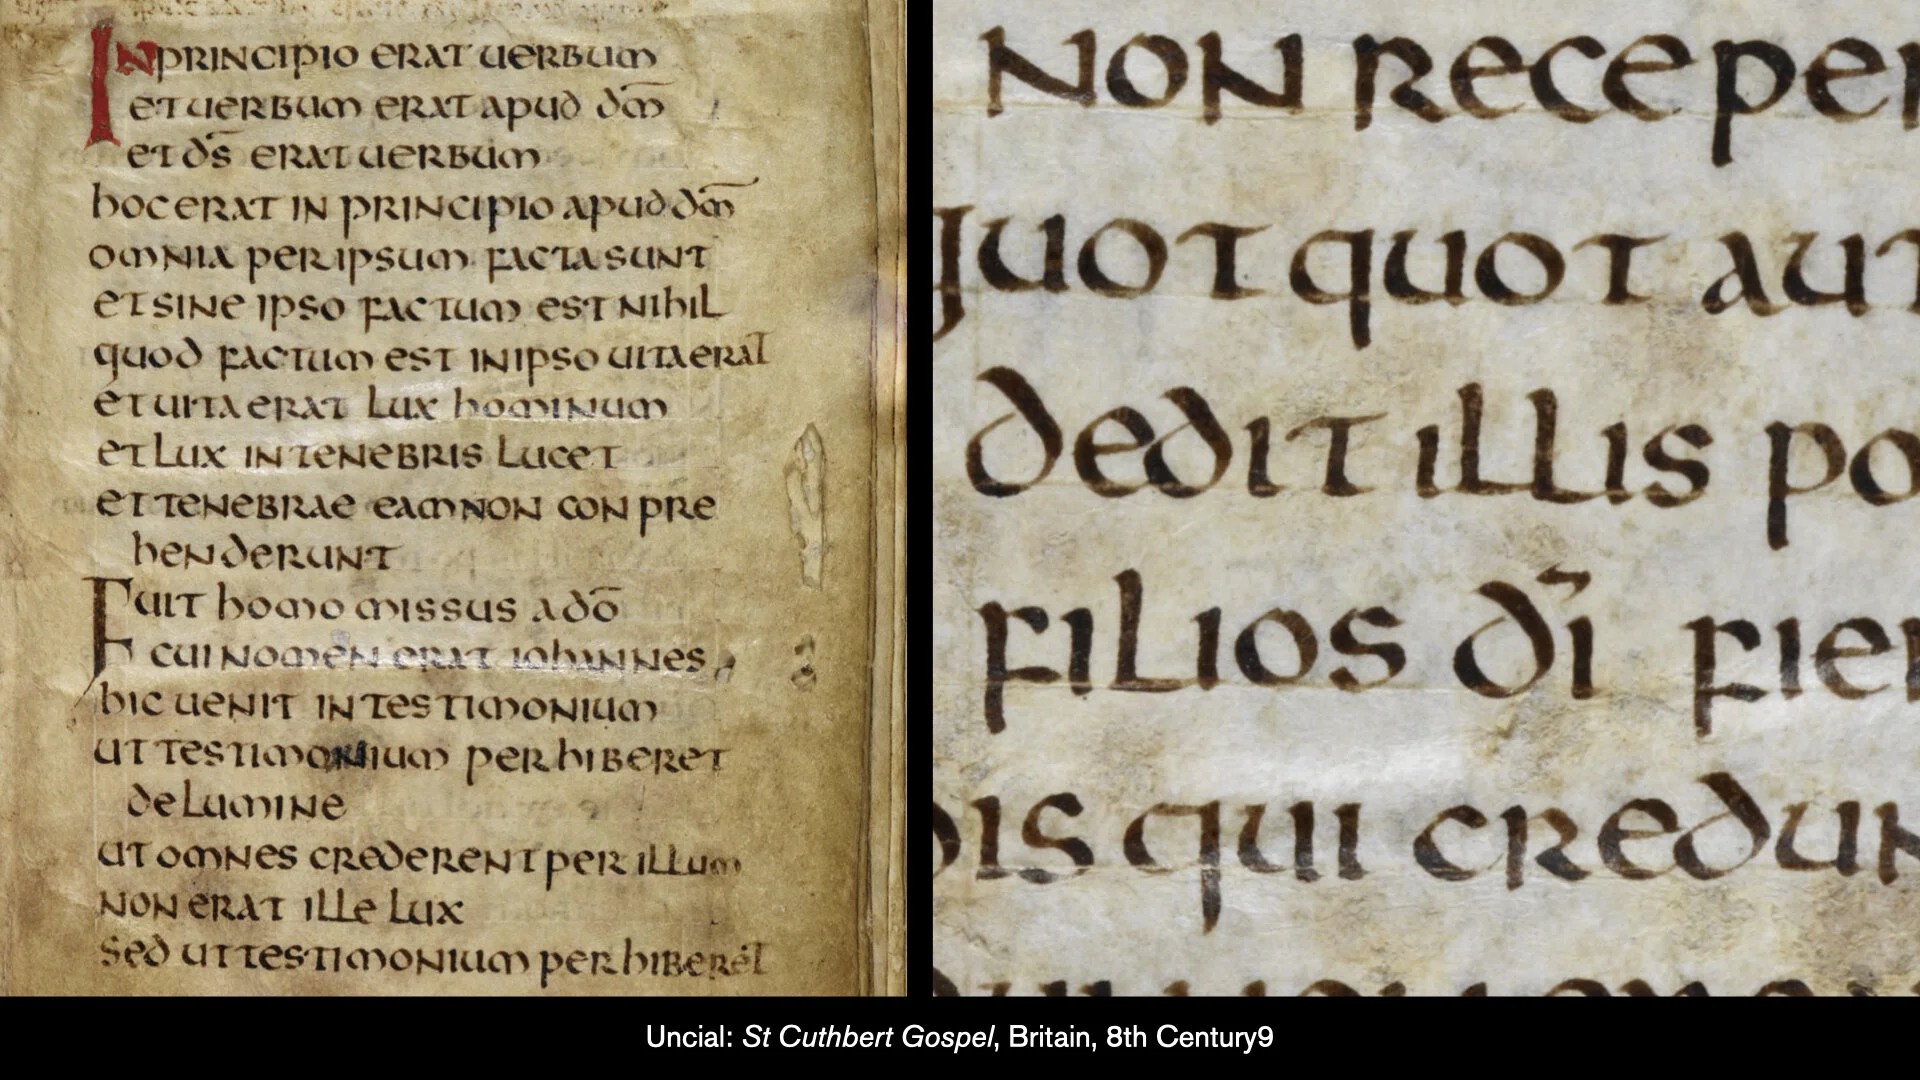 IN PRINCIPIO ERAT UERBUM
ET UERBUM ERAT APUD DM̄
ET DS̄ ERAT UERBUM
HOC ERAT IN PRINCIPIO APUD DM̄
OMNIA PER IPSUM FACTA SUNT
ET SINE IPSO FACTUM EST NIHIL
QUOD FACTUM EST IN IPSO UITA ERAT
ET UITA ERAT LUX HOMINUM
ET LUX IN TENEBRIS LUCET
ET TENEBRAE EAM NON CONPRE
HENDERUNT
FUIT HOMO MISSUS A DŌ
CUI NOMEN ERAT IOHANNES
HIC UENIT IN TESTIMONIUM
UT TESTIMONIUM PERHIBERET
DE LUMINE
UT OMNES CREDERENT PER ILLUM
NON ERAT ILLE LUX
SED UT TESTIMONIUM PERHIBERET
NON RECEPER
QUOTQUOT AUT
DEDIT ILLIS PO
FILIOS DĪ FIER
IS QUI CREDUN
Uncial: St Cuthbert Gospel, Britain, 8th Century9